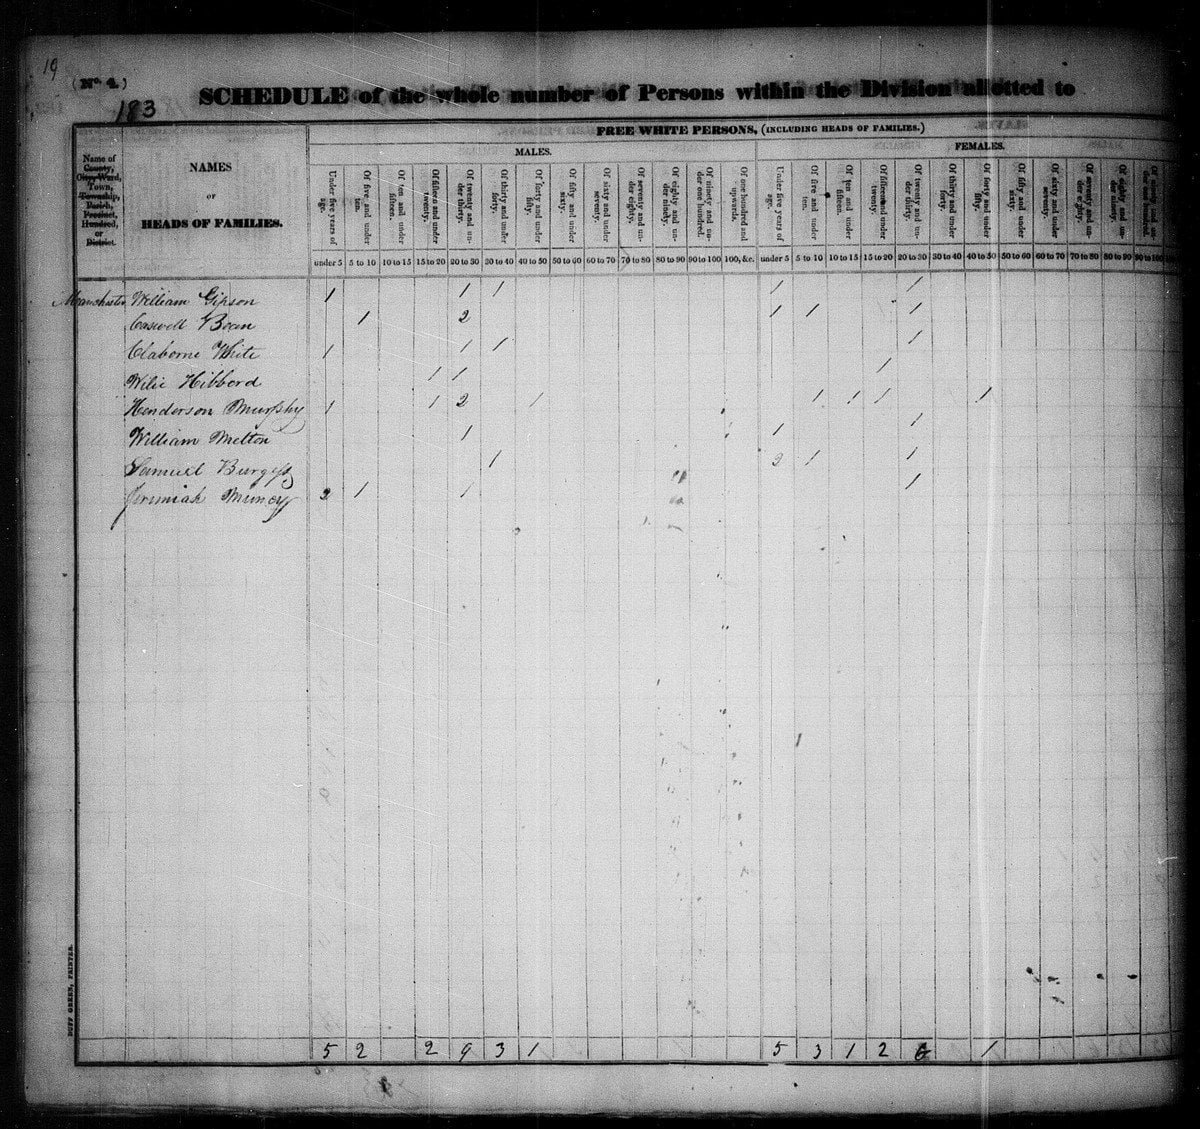 19
(No. 4.)
183
SCHEDULE of the whole number of Persons within the Division allotted to
FREE WHITE PERSONS, (INCLUDING HEADS OF FAMILIES.)
MALES. FEMALES.
Name of County, City, Ward, Town, Township, Parish, Precinct, Hundred, or District.
NAMES
OF
HEADS OF FAMILIES.
Under five years of age. Of five and under ten. Of ten and under fifteen. Of fifteen and under twenty. Of twenty and under thirty. Of thirty and under forty. Of forty and under fifty. Of fifty and under sixty. Of sixty and under seventy. Of seventy and under eighty. Of eighty and under ninety. Of ninety and under one hundred. Of one hundred and upwards. Under five years of age. Of five and under ten. Of ten and under fifteen. Of fifteen and under twenty. Of twenty and under thirty. Of thirty and under forty. Of forty and under fifty. Of fifty and under sixty. Of sixty and under seventy. Of seventy and under eighty. Of eighty and under ninety. Of ninety and under one hundred.
under 5 5 to 10 10 to 15 15 to 20 20 to 30 30 to 40 40 to 50 50 to 60 60 to 70 70 to 80 80 to 90 90 to 100 100, &c. under 5 5 to 10 10 to 15 15 to 20 20 to 30 30 to 40 40 to 50 50 to 60 60 to 70 70 to 80 80 to 90 90 to 100
Manchester William Gipson 1 1 1 1 1
Caswell Bean 1 2 1 1 1
Claborne White 1 1 1 1
Wilie Hibbord 1 1 1
Henderson Murphy 1 1 2 1 1 1 1 1
William Melton 1 1 1
Samuel Burgess 1 2 1 1
Jeremiah Muncy 2 1 1 1
5 2 2 9 3 1 5 3 1 2 6 1
DUFF GREEN, PRINTER.